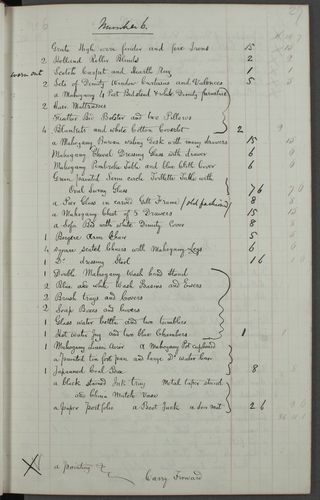 Number 6.
Grate High worn fender and fire Irons 15
2 Holland Roller Blinds 2
worn out Scotch Carpet and Hearth Rug 1
2 Sets of Dimity Window Curtains and Valences 5
a Mahogany 4 Post Bedstead & white Dimity furniture
2 Hair Mattresses
Feather Bed Bolster and two Pillows
4 Blankets and white Cotton Coverlet 2
a Mahogany Bureau writing Desk with many drawers 15
Mahogany Cheval Dressing Glass with drawer 6
Mahogany Pembroke Table and blue Cloth Cover 6
Green painted Semi circle Toilette Table with
Oval Swing Glass 7 6
a Pier Glass in carved Gilt Frame (old fashioned) 8
a Mahogany Chest of 5 Drawers 15
a Sofa Bed with white Dimity Cover 8
1 Bergere Arm Chair 5
4 square seated Chairs with Mahogany Legs 6
1 Do. dressing Stool 1 6
1 Double Mahogany Wash hand Stand
2 Blue and white Wash Basins and Ewers
2 Brush trays and Covers
2 Soap Boxes and Covers
1 Glass water bottle and two tumblers
1 Hot Water Jug and two blue Chambers 1
1 Mahogany Linen Airer a Mahogany Pot cupboard
a painted tin foot pan and large Do. water Can
1 Japanned Coal Box 8
a black stained Ink tray Metal taper stand
and China Match Vase
a paper Portfolio a Boot Jack 2 6
X a painting
Carry Forward